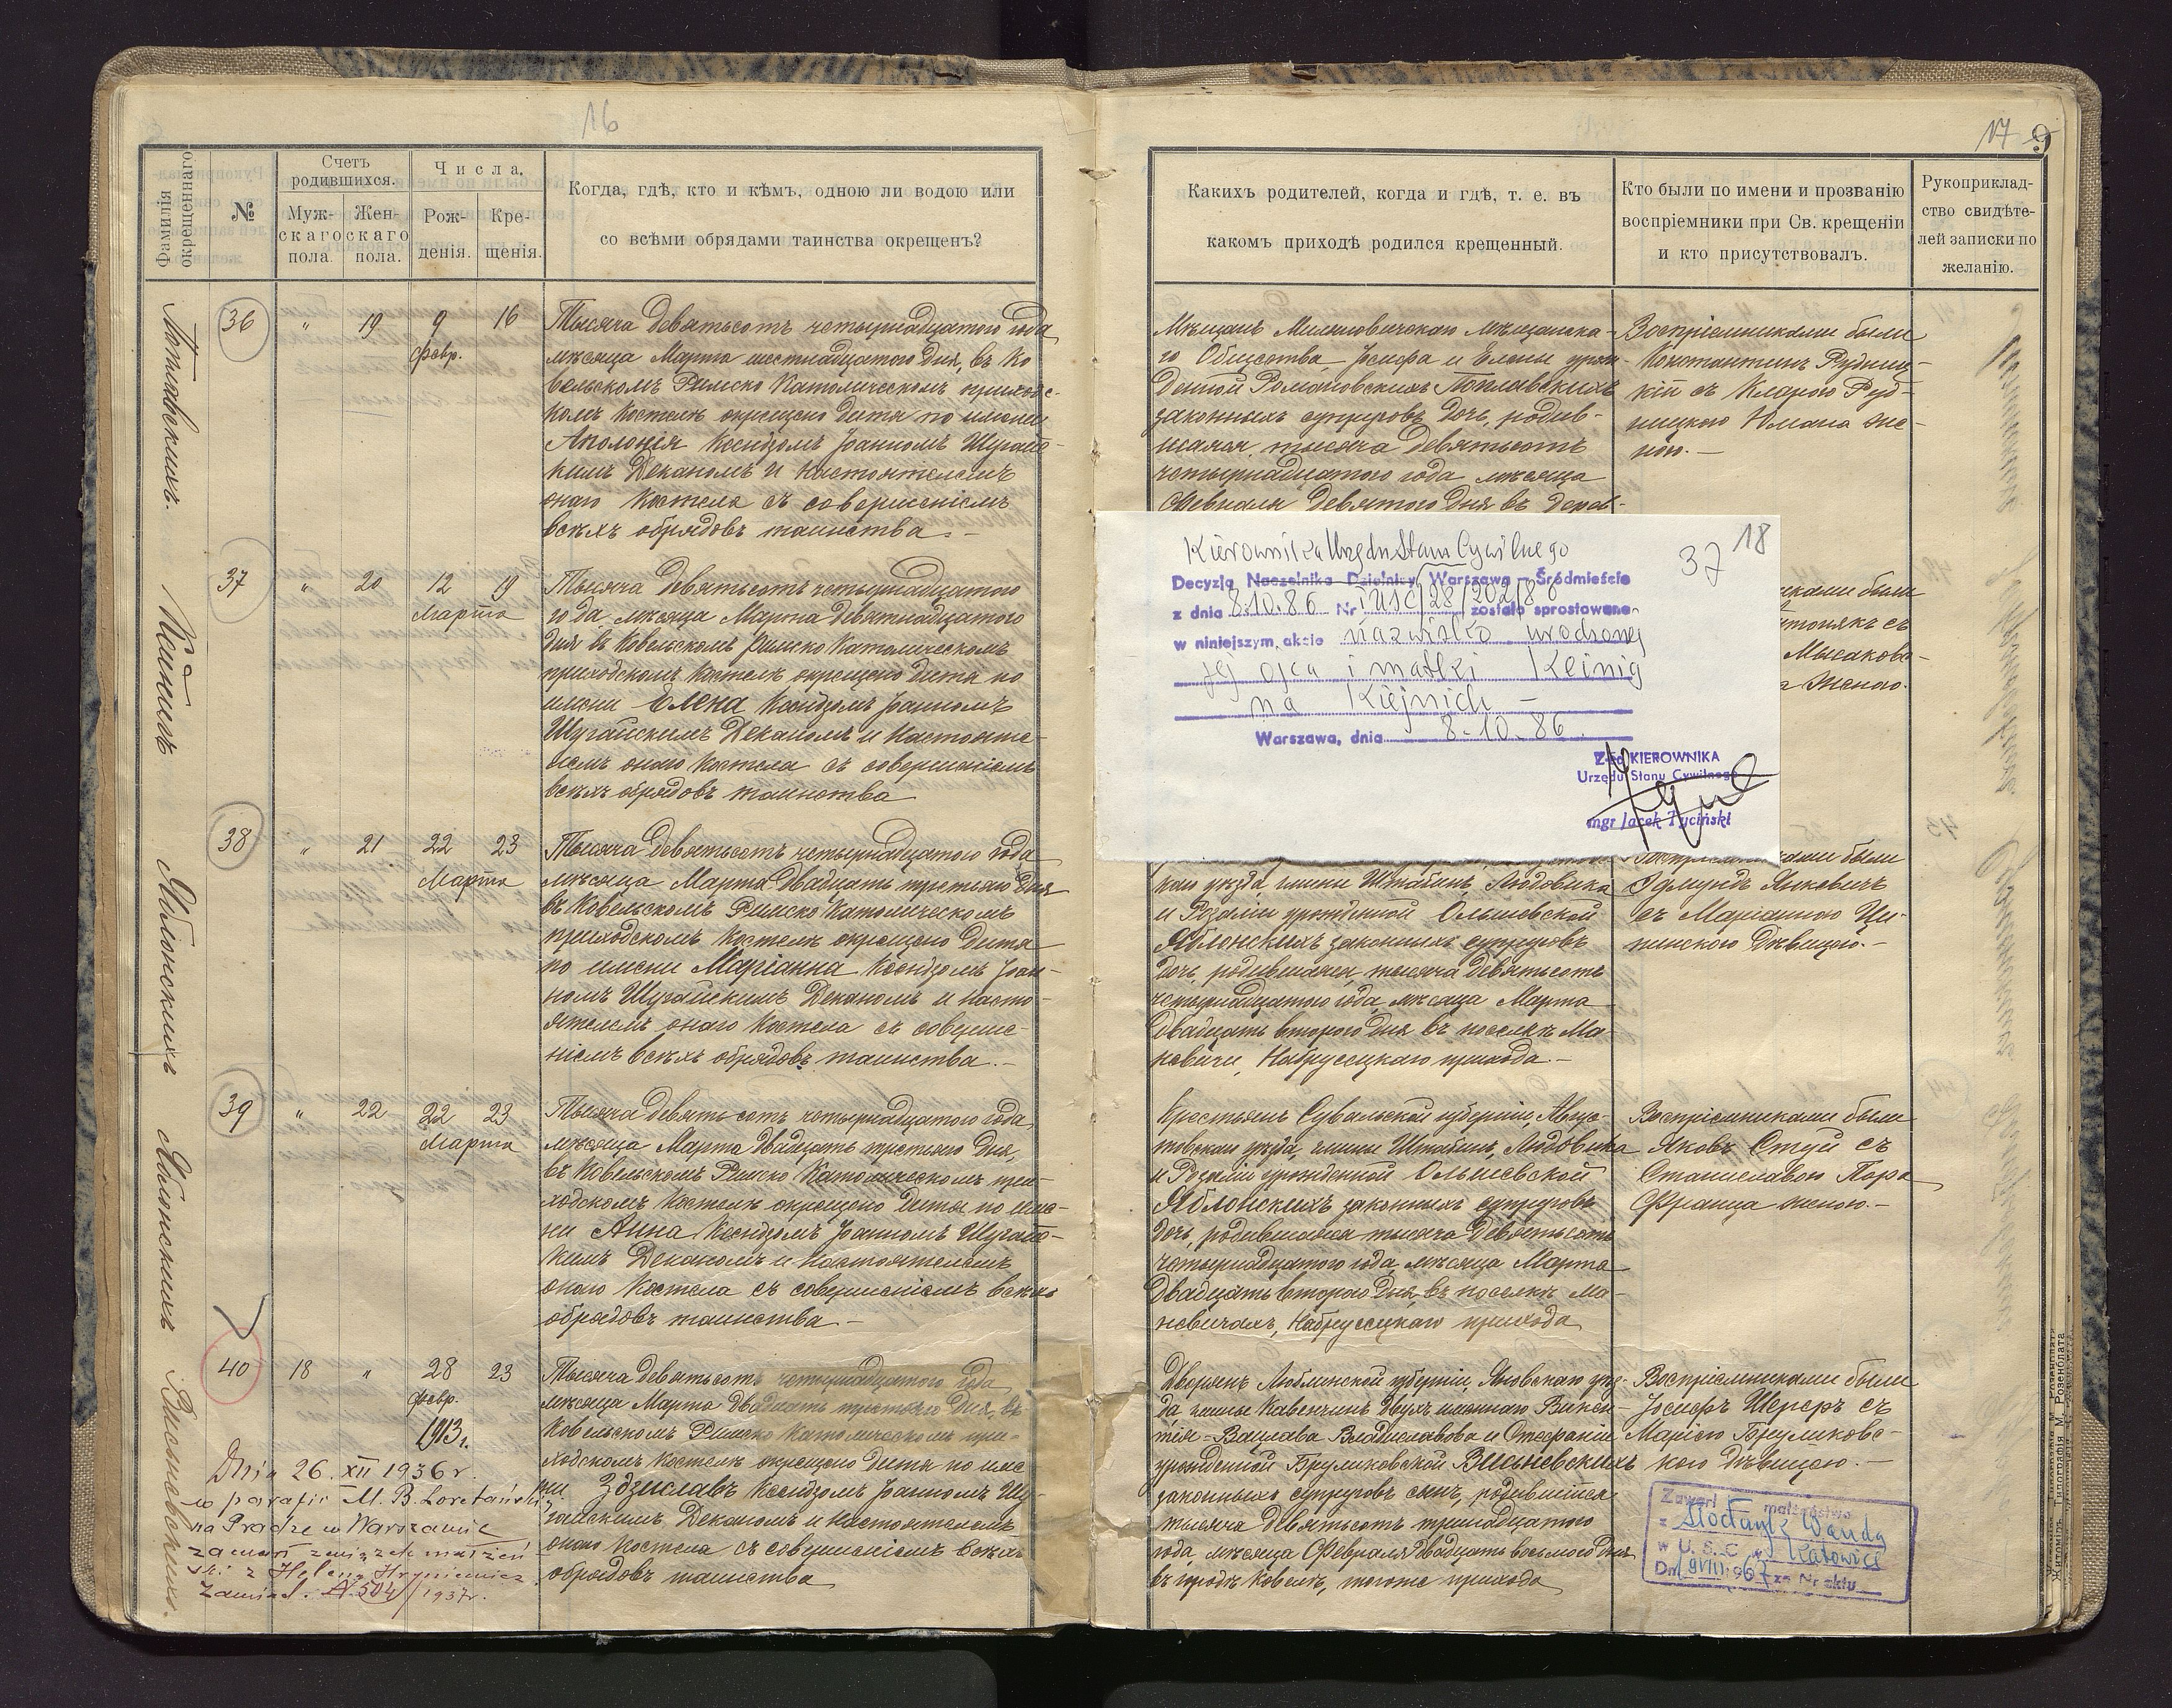 16
Фамилія окрещеннаго.
№
Счетъ родившихся.
Муж-скаго пола.
Жен-скаго пола.
Числа.
Рож-денія.
Кре-щенія.
Когда, гдѣ, кто и кѣмъ, одною ли водою или
со всѣми обрядами таинства окрещенъ?
Поплавскихъ.
36
"
19
9
февр.
16
Тысяча девятьсотъ четырнадцатого года
мѣсяца Марта шестнадцатого дня, въ Ко
вельскомъ Римско Католическомъ приходс-
комъ костелѣ окрещено дитя по имени
Аполонія Ксендзомъ Іоанномъ Шугайс-
кимъ Деканомъ и Настоятелемъ
онаго Костела съ совершеніемъ
всѣхъ обрядовъ таинства.-
37
"
20
12
Марта
19
Тысяча девятьсотъ четырнадцатого
года, мѣсяца Марта девятнадцатого
дня въ Ковельскомъ Римско Католическомъ
приходскомъ костелѣ окрещено дитя по
имени Елена Ксендзомъ Іоанномъ
Шугайскимъ Деканомъ и Настояте-
лемъ онаго костела съ совершеніемъ
всѣхъ обрядовъ таинства
Яблонскихъ
38
"
21
22
Марта
23
Тысяча девятьсотъ четырнадцатого года
мѣсяца Марта двадцать третьяго дня
въ Ковельскомъ Римско Католическомъ
приходскомъ костелѣ окрещено дитя
по имени Маріанна Ксендзомъ Іоан-
номъ Шугайскимъ Деканомъ и Насто-
ятелемъ онаго Костела съ соверше-
ніемъ всѣхъ обрядовъ таинства.-
Яблонскихъ
39
"
22
22
Марта
23
Тысяча девятьсотъ четырнадцатого года,
мѣсяца Марта двадцать третьяго дня,
въ Ковельскомъ Римско Католическомъ при-
ходскомъ костелѣ окрещено дитя по име-
ни Анна Ксендзомъ Іоанномъ Шугайс-
кимъ Деканомъ и Настоятелемъ
онаго Костела съ совершеніемъ всѣхъ
обрядовъ таинства -
Висьневскихъ.
40
18
"
28
февр.
1913г.
23
Тысяча девятьсотъ четырнадцатого года
мѣсяца Марта двадцать третьяго дня, въ
Ковельскомъ Римско Католическомъ при-
ходскомъ костелѣ окрещено дитя по име
ни Здзиславъ Ксендзомъ Іоанномъ Шу-
гайскимъ Деканомъ и Настоятелемъ
онаго Костела съ совершеніемъ всѣхъ
обрядовъ таинства
Dnia 26.XII 1936 r.
w parafii M.B. Loretańskiej
na Pradze w Warszawie
zawarł związek małżeń-
ski z Heleną Hryniewicz
Zawiad. № 504/1937r.
17 9
Какихъ родителей, когда и гдѣ, т. е. въ
какомъ приходѣ родился крещенный.
Кто были по имени и прозванію
воспріемники при Св. крещеніи
и кто присутствовалъ.
Рукоприклад-
ство свидѣте-
лей записки по
желанію.
Мѣщанъ Миляновичскаго мѣщанска-
го Общества, Іосифа и Елены урож-
денной Романовскихъ Поплавскихъ
законныхъ супруговъ дочь, родив-
шаяся, тысяча девятьсотъ
четырнадцатого года, мѣсяца
Февраля девятого дня въ дерев-
Воспріемниками были
Константинъ Рудниц-
кій съ Кларою Руд-
ницкою Юліана же-
ною.-
Kierownika Urzędu Stanu Cywilnego
37
18
Decyzją Naczelnika Dzielnicy Warszawa - Śródmieście
z dnia 8.10.86 Nr USC/28/202/86 zostało sprostowane
w niniejszym akcie nazwisko urodzonej
jej ojca i matki Keinig
na Kiejnich -
Warszawa, dnia 8.10.86.
Z-ca KIEROWNIKA
Urzędu Stanu Cywilnego
mgr Jacek Tyciński
никами были
Мысаковс-
женою.
каго уѣзда, гмины Штабинъ, Людовика
и Розаліи урожденной Ольшевской
Яблонскихъ законныхъ супруговъ
дочь, родившаяся, тысяча девятьсотъ
четырнадцатого года, мѣсяца Марта
двадцать второго дня въ поселкѣ Ма-
невичи, Набруссецкаго прихода.-
Воспріемниками были
Эдмундъ Янкевичъ
съ Маріанною Ци-
пинскою дѣвицею.-
Крестьянъ Сувальской губерніи, Авгус-
товскаго уѣзда, гмины Штабинъ, Людовика
и Розаліи урожденной Ольшевской
Яблонскихъ законныхъ супруговъ
дочь, родившаяся тысяча девятьсотъ
четырнадцатого года, мѣсяца Марта
двадцать второго дня, въ поселкѣ Ма-
невичахъ, Набруссецкаго прихода
Воспріемниками были
Яковъ Стуй съ
Станиславою Пора
Франца женою.-
Дворянъ Люблинской губерніи, Яновскаго уѣз-
да, гмины Кавенчинъ двухъ именнаго Викен-
тія-Вацлава Владиславова и Стефаніи
урожденной Бруликовской Висьневскихъ
законныхъ супруговъ сынъ, родившійся
тысяча девятьсотъ тринадцатого
года, мѣсяца Февраля двадцать восьмого дня
въ городѣ Ковелѣ, тогоже прихода
Воспріемниками были
Іосифъ Шереръ съ
Маріею Бруликовс-
кою дѣвицею.-
Zawarł małżeństwo
z Wandą
w U.S.C. w Katowice
Dn. 9 VIII. 1967 za Nr aktu
Житомиръ. Типографія М. Розенблата